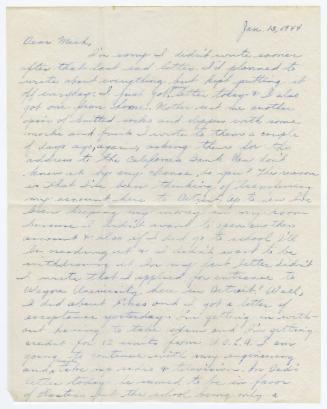 Jan. 13, 1944
Dear Mich,
I'm sorry I didn't write sooner
after that last sad letter. I'd planned to
write about everything but kept putting it
off everyday. I just got letter today & I also
got one from home. Mother sent me another
pair of knitted socks and slippers with some
and I wrote to them a couple
of days ago, again, asking them for the
address to the California Bank. You don't
know it by any chance, do you? The reason
is that I've been thinking of transferring
my account here to Detroit. Up to now I've
been keeping my money in my room
because I didn't want to open another
account & also if I did go to school, I'll
be needing it & I didn't want to be
withdrawing it. In my last letter didn't
I write that I applied for entrance to
Wayne University here in Detroit? Well,
I did about Xmas and I got a letter of
acceptance yesterday. I'm getting in with-
out having to take exams and I'm getting
credit for 12 units from U.C.L.A. I am
going to continue with my engineering
and take radio & television. In Dad's
letter today he seemed to be in favor
of the school being only a